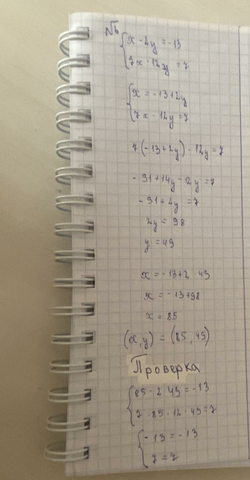 №6
x - 2y = -13
7x - 12y = 7
x = -13 + 2y
7x - 12y = 7
7(-13 + 2y) - 12y = 7
-91 + 14y - 12y = 7
-91 + 2y = 7
2y = 98
y = 49
x = -13 + 2 · 49
x = -13 + 98
x = 85
(x, y) = (85, 49)
Проверка
85 - 2 · 49 = -13
7 · 85 - 12 · 49 = 7
-13 = -13
7 = 7